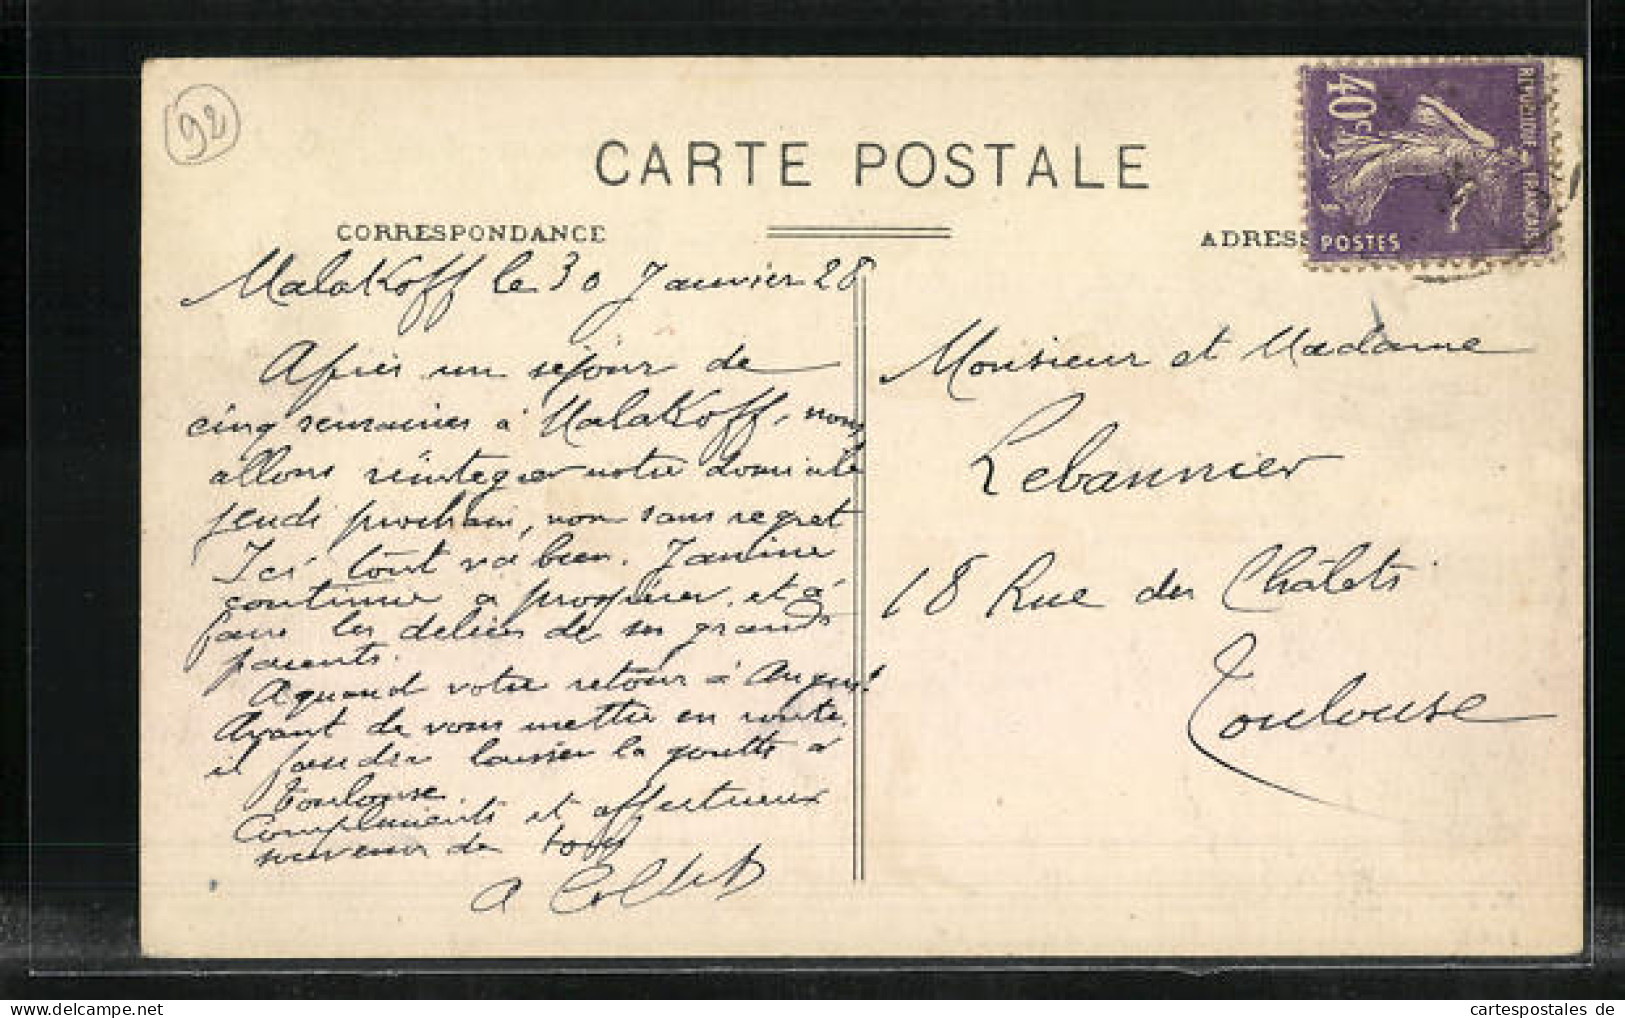 92
CARTE POSTALE
CORRESPONDANCE
ADRESS
40c
REPUBLIQUE FRANCAISE
POSTES
Malakoff le 30 Janvier 28
Après un séjour de
cinq semaines à Malakoff, nous
allons réintegrer notre domicile
jeudi prochain, non sans regret
Ici tout va bien. Janine
continue à prospérer et à
faire les delices de ses grands
parents.
A quand votre retour à
Avant de vous mettre en route,
il faudra laisser la goutte à
Toulouse
Compliments et affectueux
souvenir de tous
A Collet
Monsieur et Madame
Lebannier
18 Rue des Châlets
Toulouse
cartespostales de